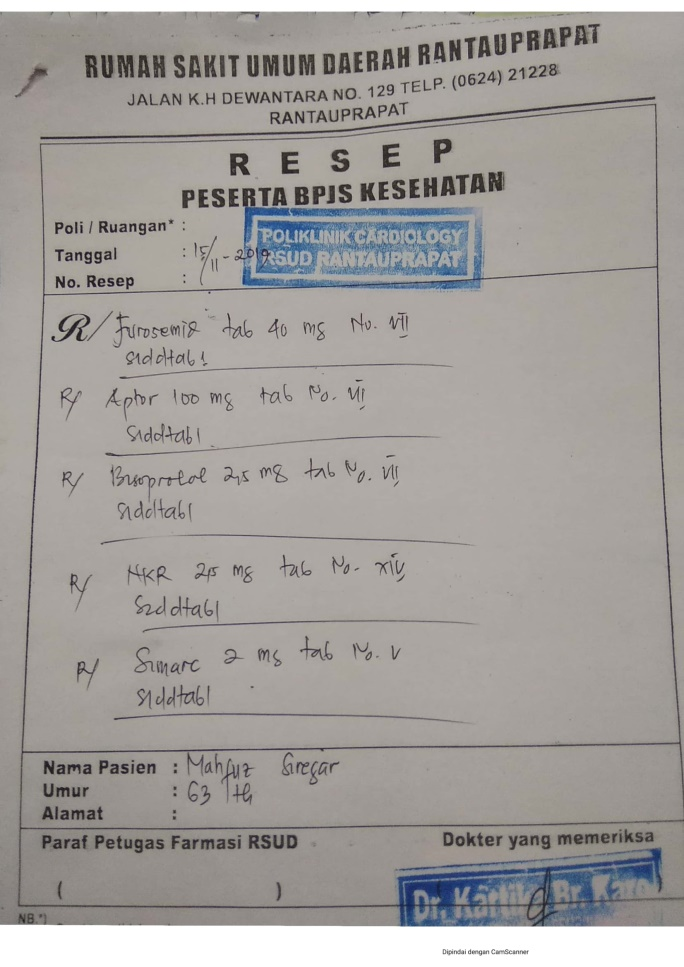 RUMAH SAKIT UMUM DAERAH RANTAUPRAPAT
JALAN K.H DEWANTARA NO. 129 TELP. (0624) 21228
RANTAUPRAPAT
RESEP
PESERTA BPJS KESEHATAN
Poli / Ruangan* :
POLIKLINIK CARDIOLOGY
RSUD RANTAUPRAPAT
Tanggal : 15/11-2019
No. Resep :
R/ Furosemid tab 40 mg No. VII
S1ddtab1
R/ Aptor 100 mg tab No. VII
S1ddtab1
R/ Bisoprolol 2,5 mg tab No. VII
S1ddtab1
R/ NKR 2,5 mg tab No. XIV
S2ddtab1
R/ Simarc 2 mg tab No. V
S1ddtab1
Nama Pasien : Mahfuz Siregar
Umur : 63 th
Alamat :
Paraf Petugas Farmasi RSUD
Dokter yang memeriksa
( )
Dr. Br.
NB.*)
Dipindai dengan CamScanner